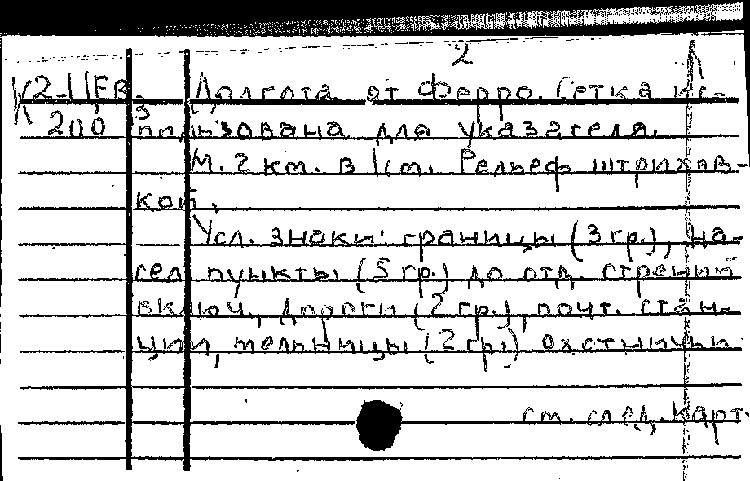 2
К2-11ЕВ. Долгота от Ферро. Сетка ис-
200 пользована для указателя.
М. 2 км. в 1 см. Рельеф штрихов-
кой.
Усл. знаки: границы (3 гр.), на-
сел пункты (5 гр.) до отд. строений
включ., дороги (2 гр.), почт. стан-
ции, мельницы (2 гр.)
см. след. карт.